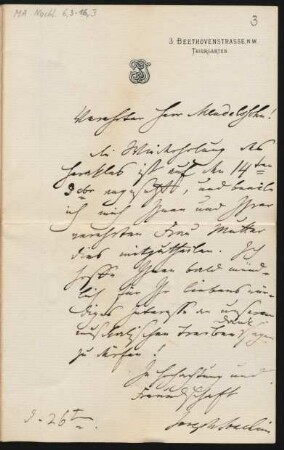 MA Nachl. 6,3-16,3
3
3. BEETHOVENSTRASSE. N.W.
THIERGARTEN.
Verehrter Herr Mendelssohn!
Die Wiederholung des
Herakles ist auf den 14ten
angesetzt, und beeile
ich mich Ihnen und Ihrer
verehrten Frau Mutter
dies mitzutheilen. Ich
hoffe Ihnen bald münd-
lich für Ihr liebenswür-
diges Interesse an unserem
musikalischen Treiben Dank sagen
zu dürfen!
In Hochachtung und
Freundschaft
Joseph Joachim
d. 26ten